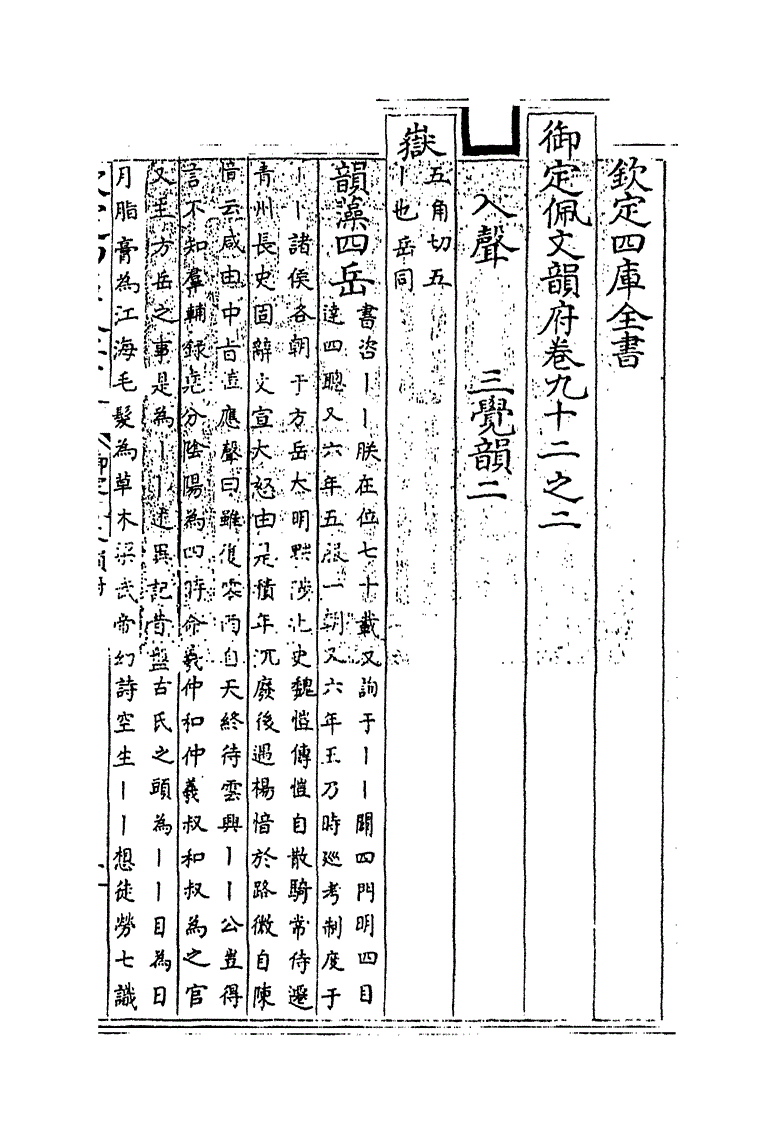 欽定四庫全書
御定佩文韻府卷九十二之二
入聲　三覺韻二
嶽
五角切五
丨也岳同
韻藻四岳
書咨丨丨朕在位七十載又詢于丨丨闢四門明四目
達四聰又六年五服一朝又六年王乃時巡考制度于
丨丨諸侯各朝于方岳大明黜陟北史魏愷傳愷自散騎常侍遷
青州長史固辭文宣大怒由是積年沉廢後遇楊愔於路微自陳
愔云咸由中旨愷應聲曰雖復零雨自天終待雲興丨丨公豈得
言不知羣輔錄堯分陰陽為四時命羲仲和仲羲叔和叔為之官
又主方岳之事是為丨丨述異記昔盤古氏之頭為丨丨目為日
月脂膏為江海毛髮為草木梁武帝幻詩空生丨丨想徒勞七識